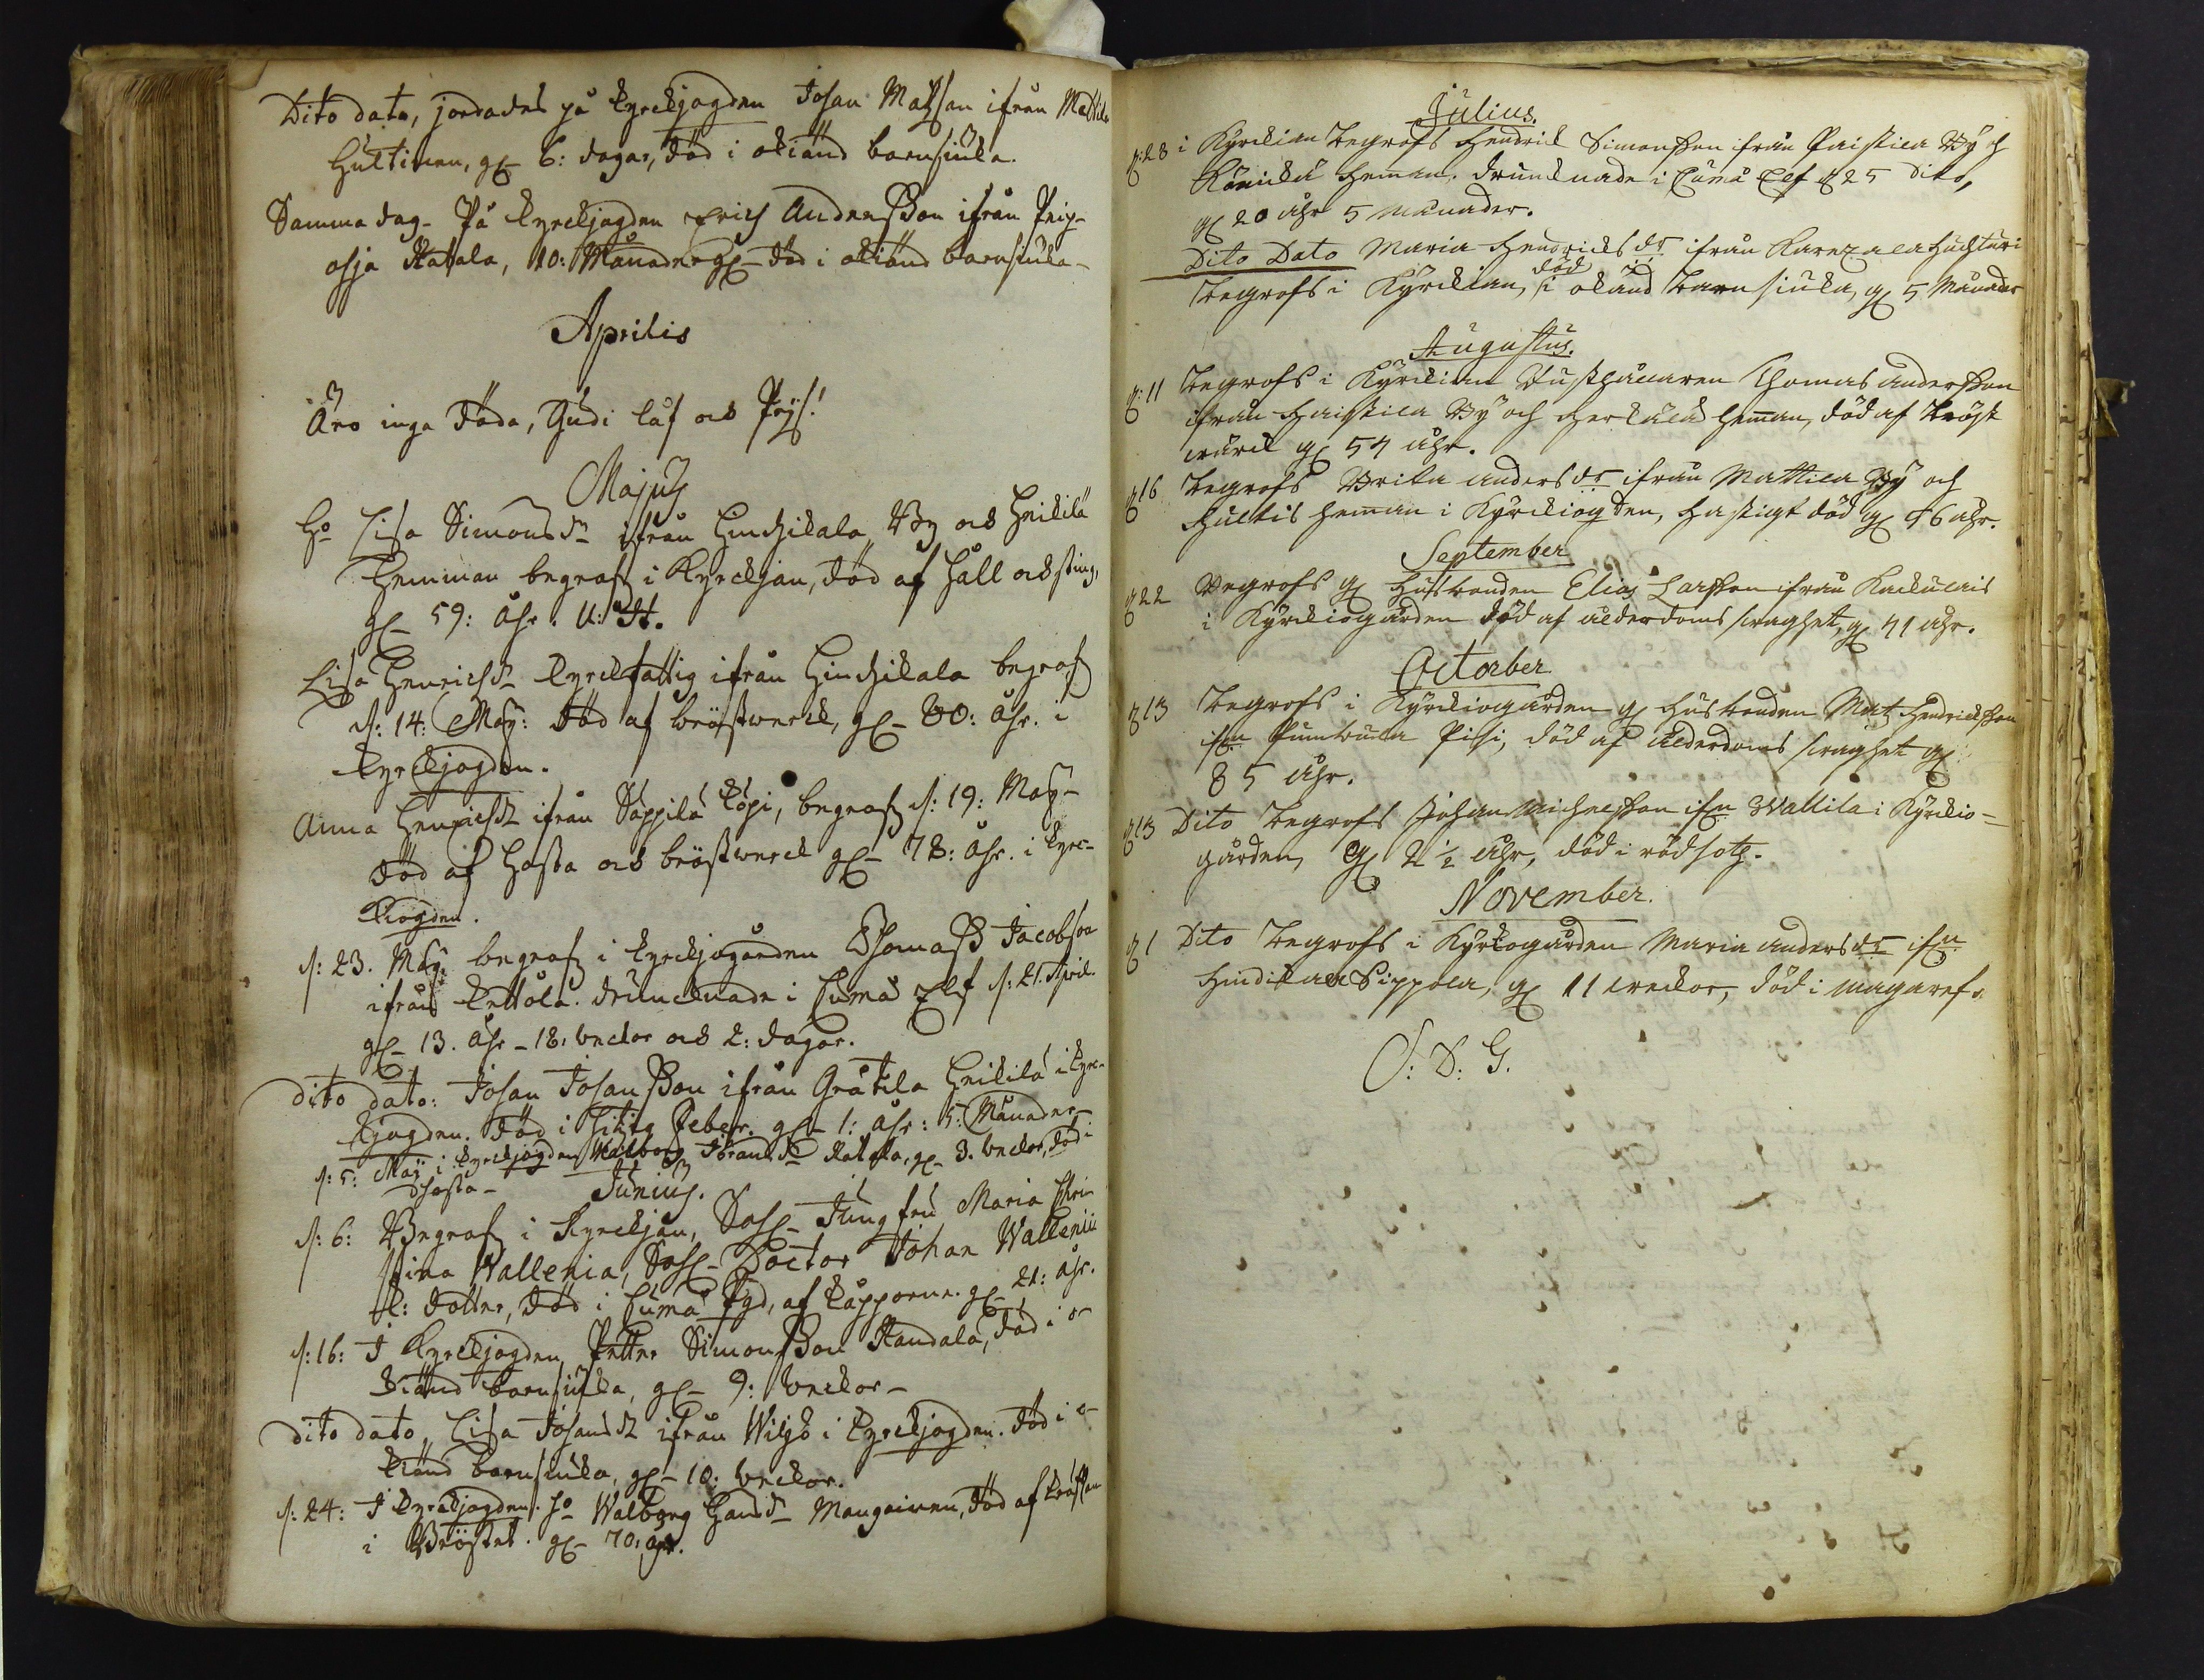 Dito dato, jordades på kyrckjogden Johan Matsson ifrån Mattila
Hultinen, gl 6: dagar, död i okiänd barnsiuka.
Samma dag. På kyrckjogden Erich Andersson ifrån Peip-
ohja Katala, 10: Månader gl död i okiänd barnsiuka
Aprilis
Äro inga döda, Gudi låf och Prijs!
Majus
Ho Lisa Simonsdr ifrån Hindzikala By och Heikilä
Hemman begrafs i Kyrckjan, död af håll och sting,
gl 59: åhr. U: H.
Lisa Henrichsdr kyrckfattig ifrån Hindzikala begrafs
d: 14: Maij: död af bröstwerck, gl 80: åhr. i
kyrckjogden.
Anna Henrichsdr ifrån Säppilä Köpi, begrafs d: 19: Maij
död af hosta och bröstwerck gl 78: åhr. i kyrc-
kiogden.
d: 23. Maij begrafs i kyrckjogården Thomas Jacobson
ifrån Kettola. drunknade i Cumå Elf d: 21. April.
gl 13. åhr 18. weckor och 2: dagar.
dito dato: Johan Johansson ifrån Gråtila Heikilä i kyrc-
kjogden. död i hitzig feber. gl 1: åhr: 5: Månader
d: 5: Maij i kyrckjogden Walborg Jöransdr Katala, gl 3. weckor, död i
hosta
Junius.
d: 6: Begrafs i Kyrckjan, Sahl Jungfru Maria Chri-
stina Wallenia, Sahl Doctor Johan Wallenii
K: dotter, död i Cumå Pgd, af kåpporne. gl 21: åhr.
d: 16: I Kyrckjogden Petter Simonsson Kandala, död i o-
kiänd barnsiuka, gl 9: weckor
dito dato, Lisa Johansdr ifrån Wiljo i kyrckjogden. död i o-
kiänd barnsiuka, gl 10: weckor.
d: 24: I kyrckjogden. ho Walborg Hansdr Mangoinen, död af
i Bröstet. gl 70: åhr.
Julius.
d: 28 i Kyrckian begrofs Hendrick Simonsson ifrån Paistila By och
Könickä Heman. drunknade i Cumå Elf d 25 dito,
gl 20 åhr 5 månader.
Dito Dato Maria Hendricksdr ifrån Karezala Huchturi
begrofs i Kyrckian, död i okänd barnsiuka, gl 5 månader
Augustus.
d: 11 begrofs i Kyrckian Husthållaren Thomas Andersson
ifrån Haistila By och Herkälä heman, död af bröst
wärck gl 54 åhr.
d 16 begrofs Brita Andersdr ifrån Mattila By och
Hultis heman i Kyrckiogden, hastigt död gl 56 åhr.
September
d 22 Begrofs gl Husbonden Elias Larsson ifrån Kackulais
i Kyrckiogården död af ålderdoms swaghet, gl 71 åhr.
Octorber
d 13 begrofs i Kyrckiogården gl Husbonden Matz Hendricksson
ifrn Pumbula Pisi, död af ålderdoms swaghet gl
85 åhr.
d 13 Dito begrofs Johan Michelsson ifrn Wallila i Kyrckio-
gården, gl 2 1/2 åhr, död i rödsotg.
November.
d 1 Dito begrofs i Kyrkogården Maria Andersdr ifrn
Hindikala Sippola, gl 11 weckor, död i magaref.
S: D: G.